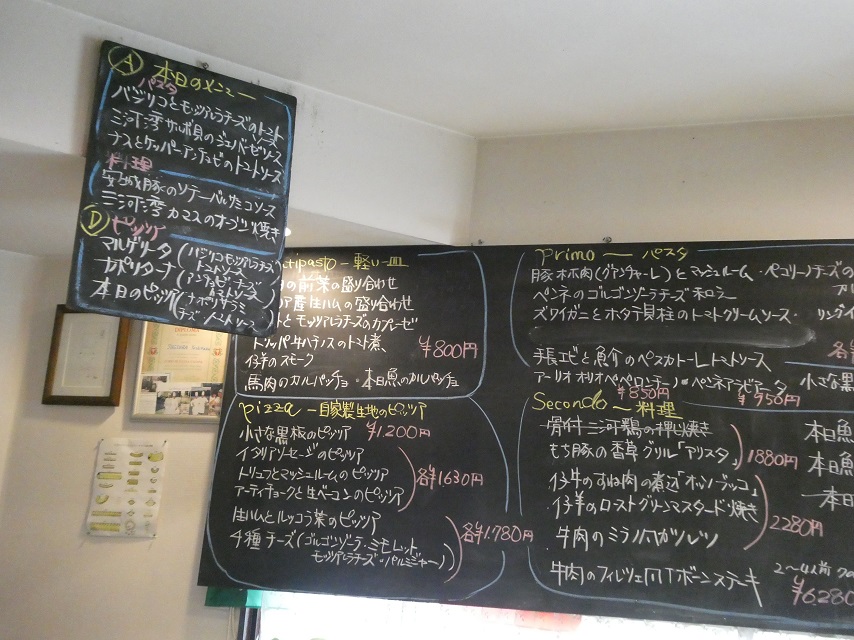 A 本日のメニュー
パスタ
バジリコとモッツアレラチーズのトマトソース
三河湾サルボ貝のジェノバーゼソース
ナスとケッパーアンチョビのトマトソース
料理
安城豚のソテーバルサミコソース
三河湾カマスのオーブン焼き
D ピッツァ
マルゲリータ(バジリコモッツアレラチーズ
トマトソース)
ナポリターナ(アンチョビ・チーズ
トマトソース)
本日のピッツァ(ナポリサラミ
チーズ トマトソース)
tipasto - 軽い一皿
の前菜の盛り合わせ
ア産生ハムの盛り合わせ
とモッツアレラチーズのカプレーゼ
トリッパ・牛ハチノスのトマト煮
仔羊のスモーク
¥800円
馬肉のカルパッチョ・本日魚のカルパッチョ
pizza - 自家製生地のピッツァ
小さな黒板のピッツァ ¥1,200円
イタリアソーセージのピッツァ
トリュフとマッシュルームのピッツァ
アーティチョークと生ベーコンのピッツァ
各¥1630円
生ハムとルッコラ菜のピッツァ
4種チーズ(ゴルゴンゾーラ・ミモレット
モッツアレラチーズ・パルミジャーノ)
各¥1,780円
Primo - パスタ
豚ホホ肉(グアンチャーレ)とマッシュルーム・ペコリーノチーズの
ペンネのゴルゴンゾーラチーズ和え
ズワイガニとホタテ貝柱のトマトクリームソース・リングイ
手長エビと魚介のペスカトーレトマトソース
アーリオオーリオペペロンチーノ・ペンネアラビアータ 小さな黒
¥850円 ¥950円
Secondo - 料理
骨付三河鶏の押し焼き
もち豚の香草グリル「アリスタ」
1880円
仔牛のすね肉の煮込「オッソブッコ」
仔羊のローストグリーンマスタード焼き
2280円
牛肉のミラノ風カツレツ
牛肉のフィレンツェ風Tボーンステーキ
2〜4人前
¥6280
本日魚
本日魚
本日